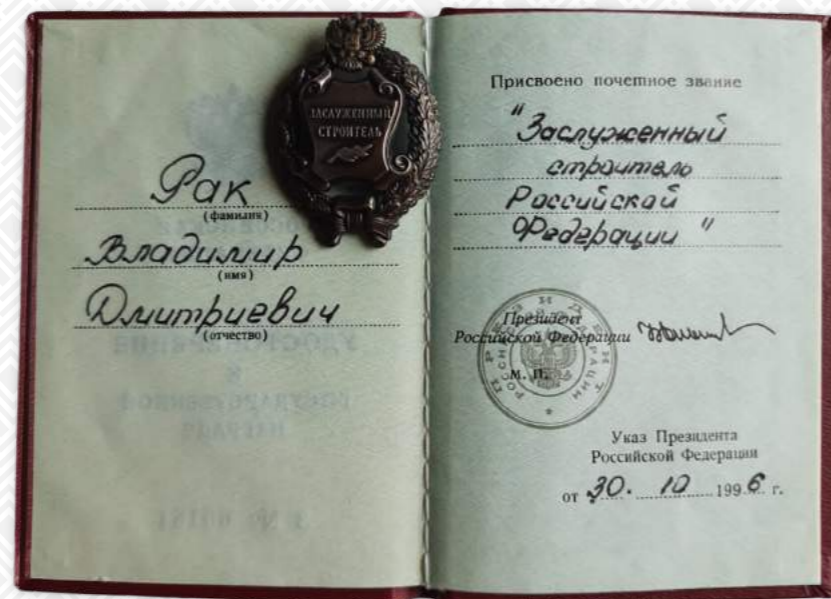 ЗАСЛУЖЕННЫЙ
СТРОИТЕЛЬ
Рак
(фамилия)
Владимир
(имя)
Дмитриевич
(отчество)
Присвоено почетное звание
"Заслуженный
строитель
Российской
Федерации"
Президент
Российской Федерации
М. П.
ПРЕЗИДЕНТ
РОССИЙСКОЙ ФЕДЕРАЦИИ
Указ Президента
Российской Федерации
от 30. 10 1996 г.